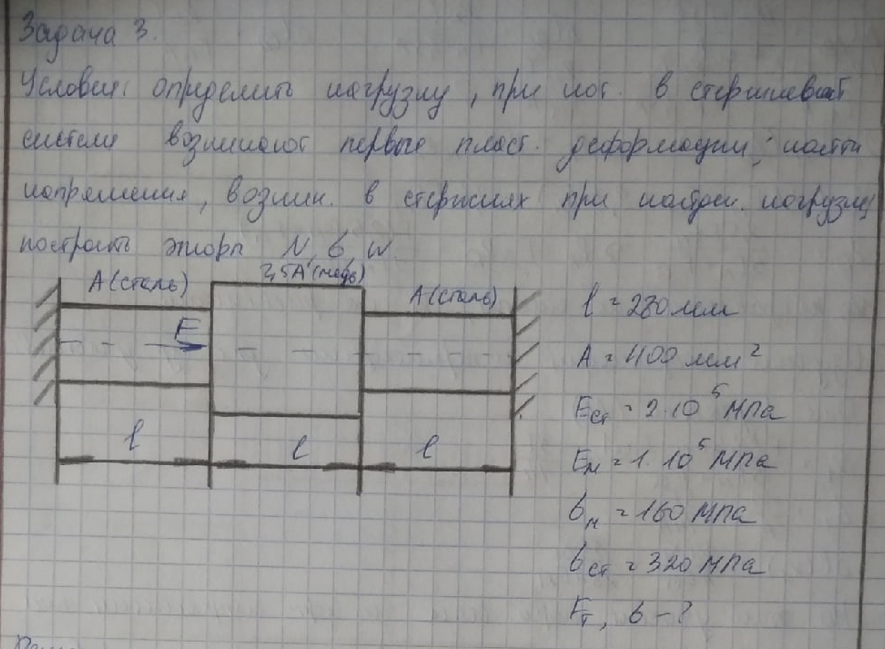 Задача 3.
Условие: определить нагрузку, при кот. в стержневой
системе возникают первые пласт. деформации; найти
напряжения, возник. в стержнях при найден. нагрузке,
построить эпюры N, б, w.
A(сталь)
2,5A (медь)
A(сталь)
F
l
l
l
l = 280 мм
A = 400 мм²
Eст = 2·10⁵ МПа
Eм = 1·10⁵ МПа
бм = 160 МПа
бст = 320 МПа
Fт, б - ?